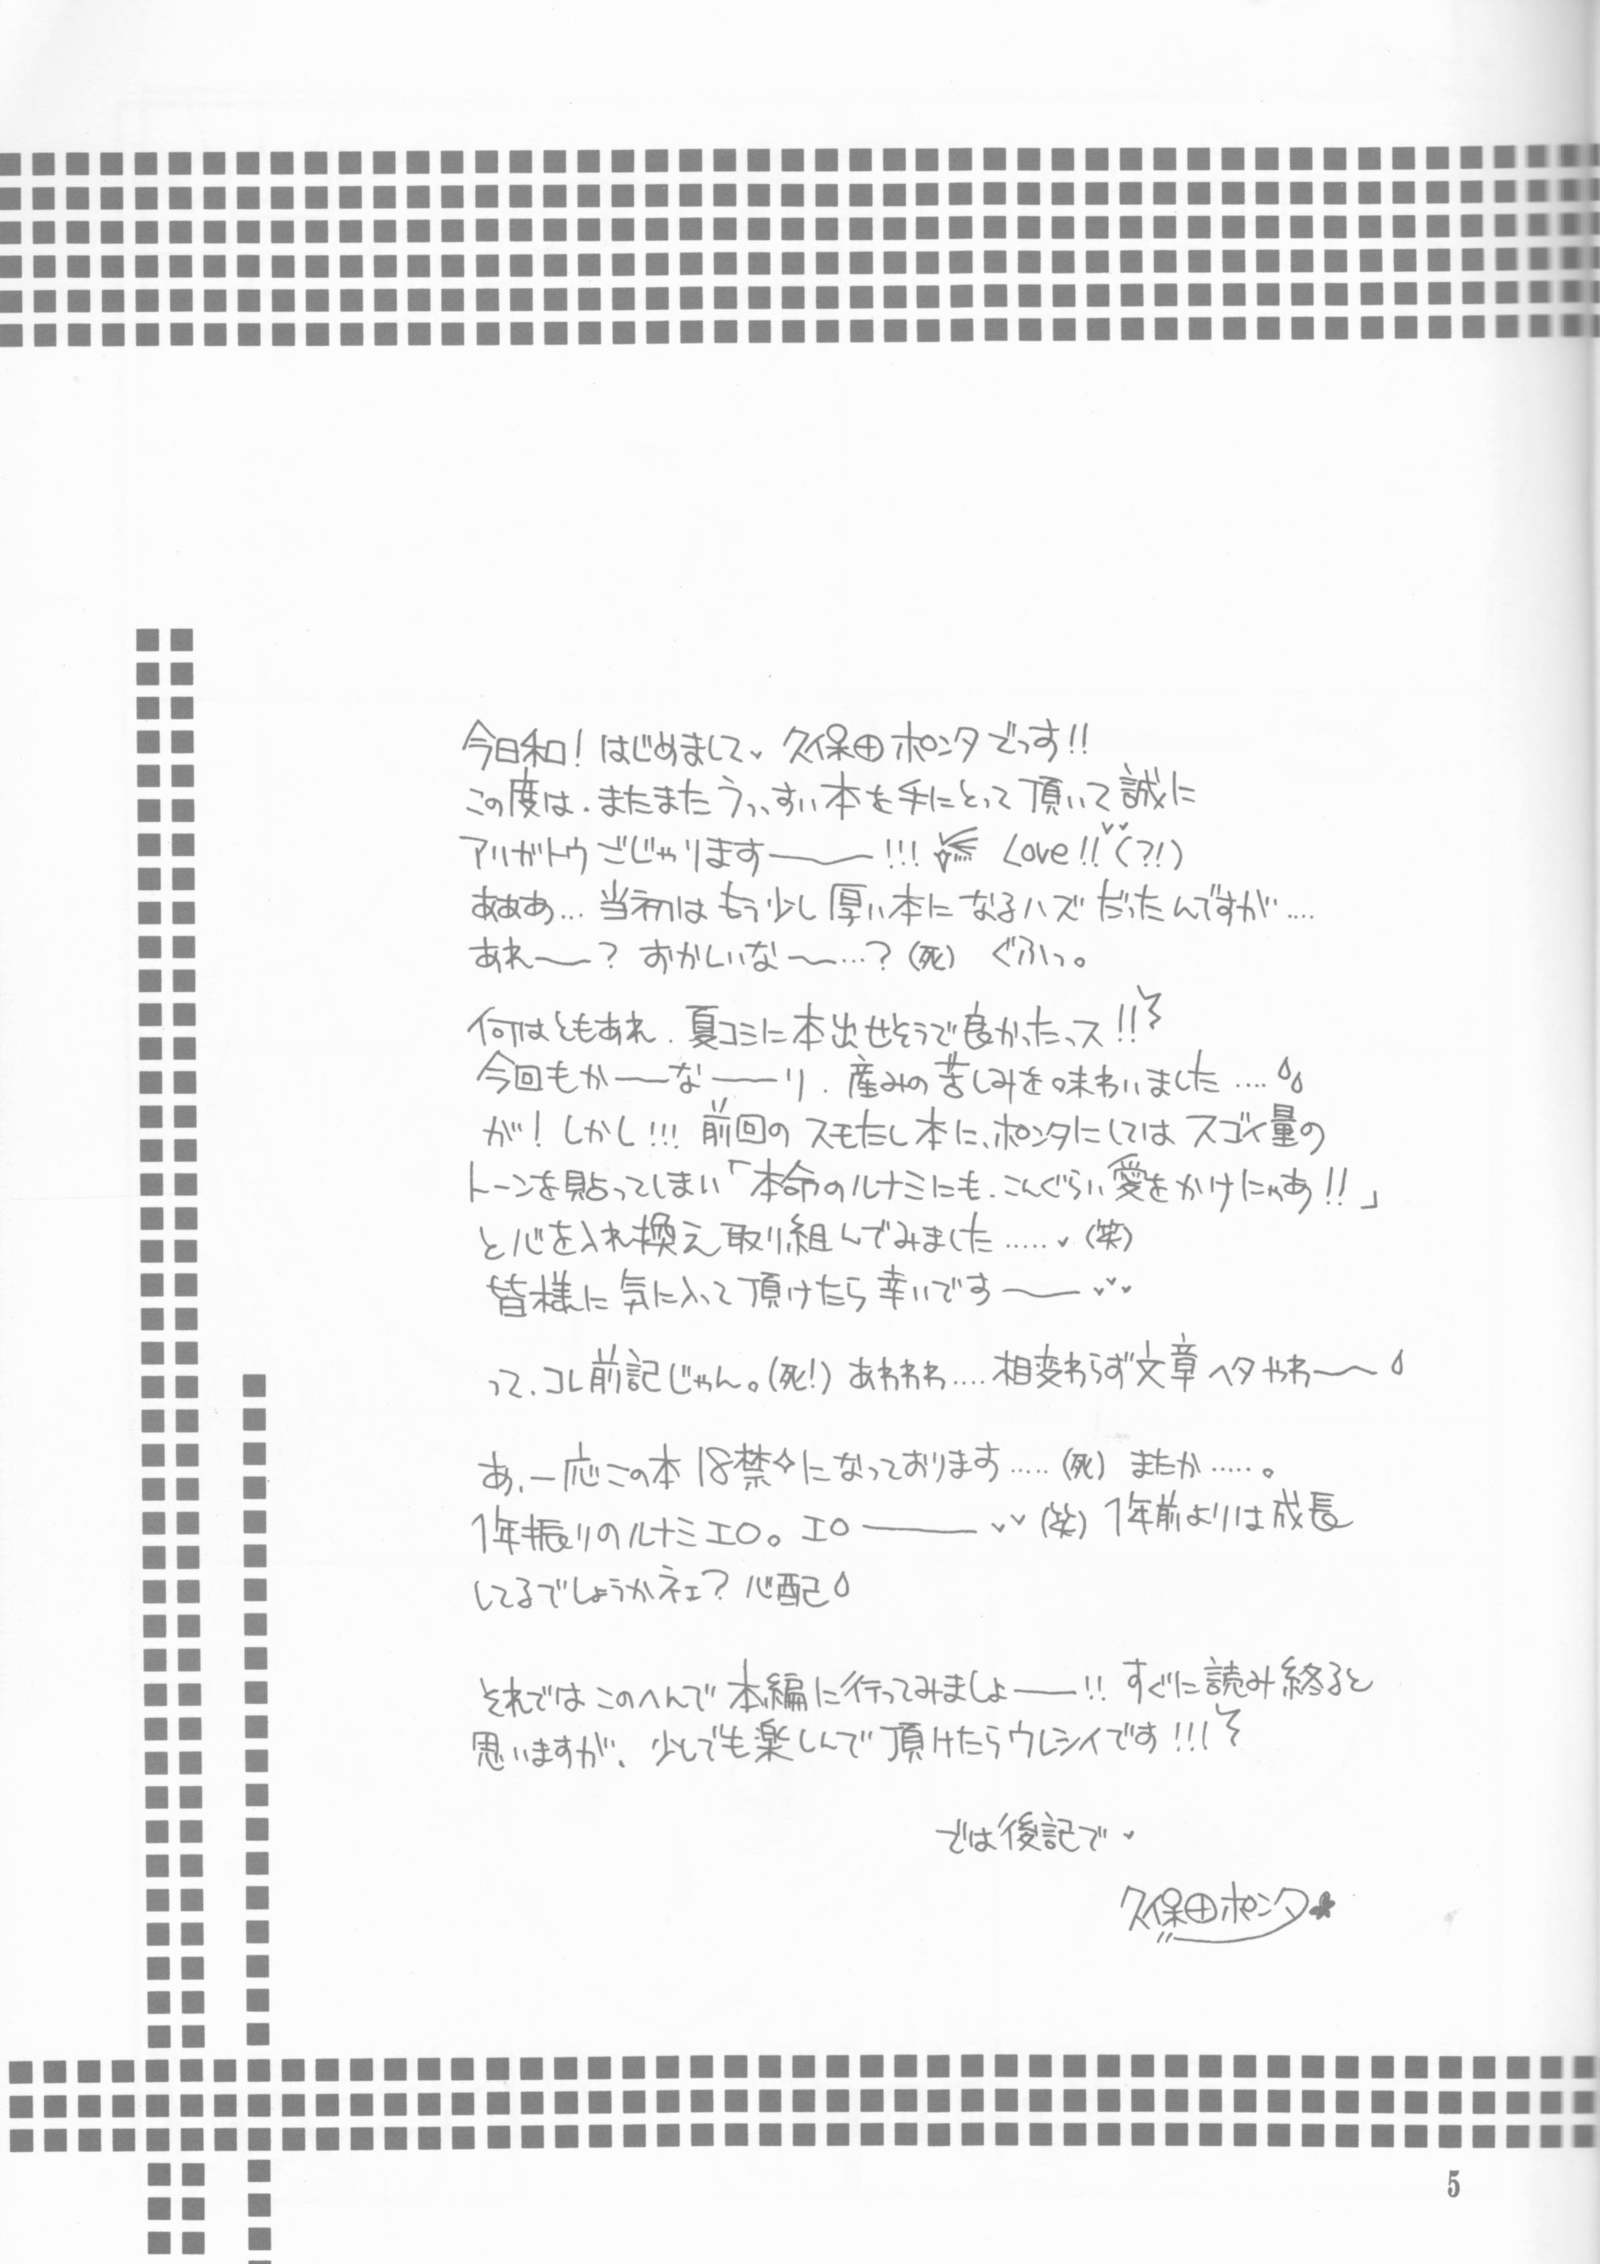 今日和! はじめまして♥ 久保田ポンタでっす!!
この度は、またまたうっすい本を手にとって頂いて誠に
アリガトウごじゃります〜!!! Love!!♥♥(?!)
あああ… 当初はもう少し厚い本になるハズだったんですが….
あれ〜? おかしいな〜…? (死) ぐふっ。
何はともあれ、夏コミに本出せそうで良かったっス!!
今回もか――な――り、産みの苦しみを味わいました….
が! しかし!!! 前回のスモたし本に、ポンタにしてはスゴイ量の
トーンを貼ってしまい「本命のルナミにも、こんぐらい愛をかけにゃあ!!」
と心を入れ換え取り組んでみました…..♥(笑)
皆様に気に入って頂けたら幸いです〜♥♥
って、コレ前記じゃん。(死!) あわわわ….相変わらず文章ヘタやわ〜
あ、一応この本18禁✧になっております….. (死) またか…..。
1年振りのルナミエロ。エロ――――♥♥ (笑) 1年前よりは成長
してるでしょうかネェ? 心配
それではこのへんで本編に行ってみましょ――!! すぐに読み終ると
思いますが、少しでも楽しんで頂けたらウレシイです!!!
では後記で♥
久保田ポンタ
5